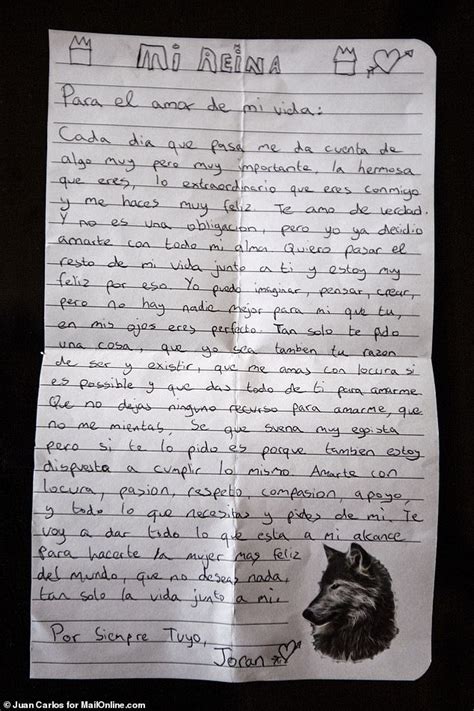 Mi REiNA
Para el amor de mi vida:
Cada dia que pasa me da cuenta de
algo muy pero muy importante, la hermosa
que eres, lo extraordinario que eres conmigo
y me haces muy feliz. Te amo de verdad.
Y no es una obligacion, pero yo ya decidio
amarte con todo mi alma. Quiero pasar el
resto de mi vida junto a ti y estoy muy
feliz por eso. Yo puedo imaginar, pensar, crear,
pero no hay nadie mejor para mi que tu,
en mis ojos eres perfecto. Tan solo te pido
una cosa, que yo sea tamben tu razon
de ser y existir, que me amas con locura si
es possible y que das todo de ti para amarme
Que no dejas ninguno recurso para amarme, que
no me mientas. Se que suena muy egoista
pero si te lo pido es porque tambien estoy
dispuesta a cumplir lo mismo. Amarte con
locura, pasion, respeto, compasion, apoyo,
y todo lo que necesitas y pides de mi. Te
voy a dar todo lo que esta a mi alcance
para hacerte la mujer mas feliz
del mundo, que no deseas nada,
tan solo la vida junto a mi.
Por Siempre Tuyo,
Joran
© Juan Carlos for MailOnline.com